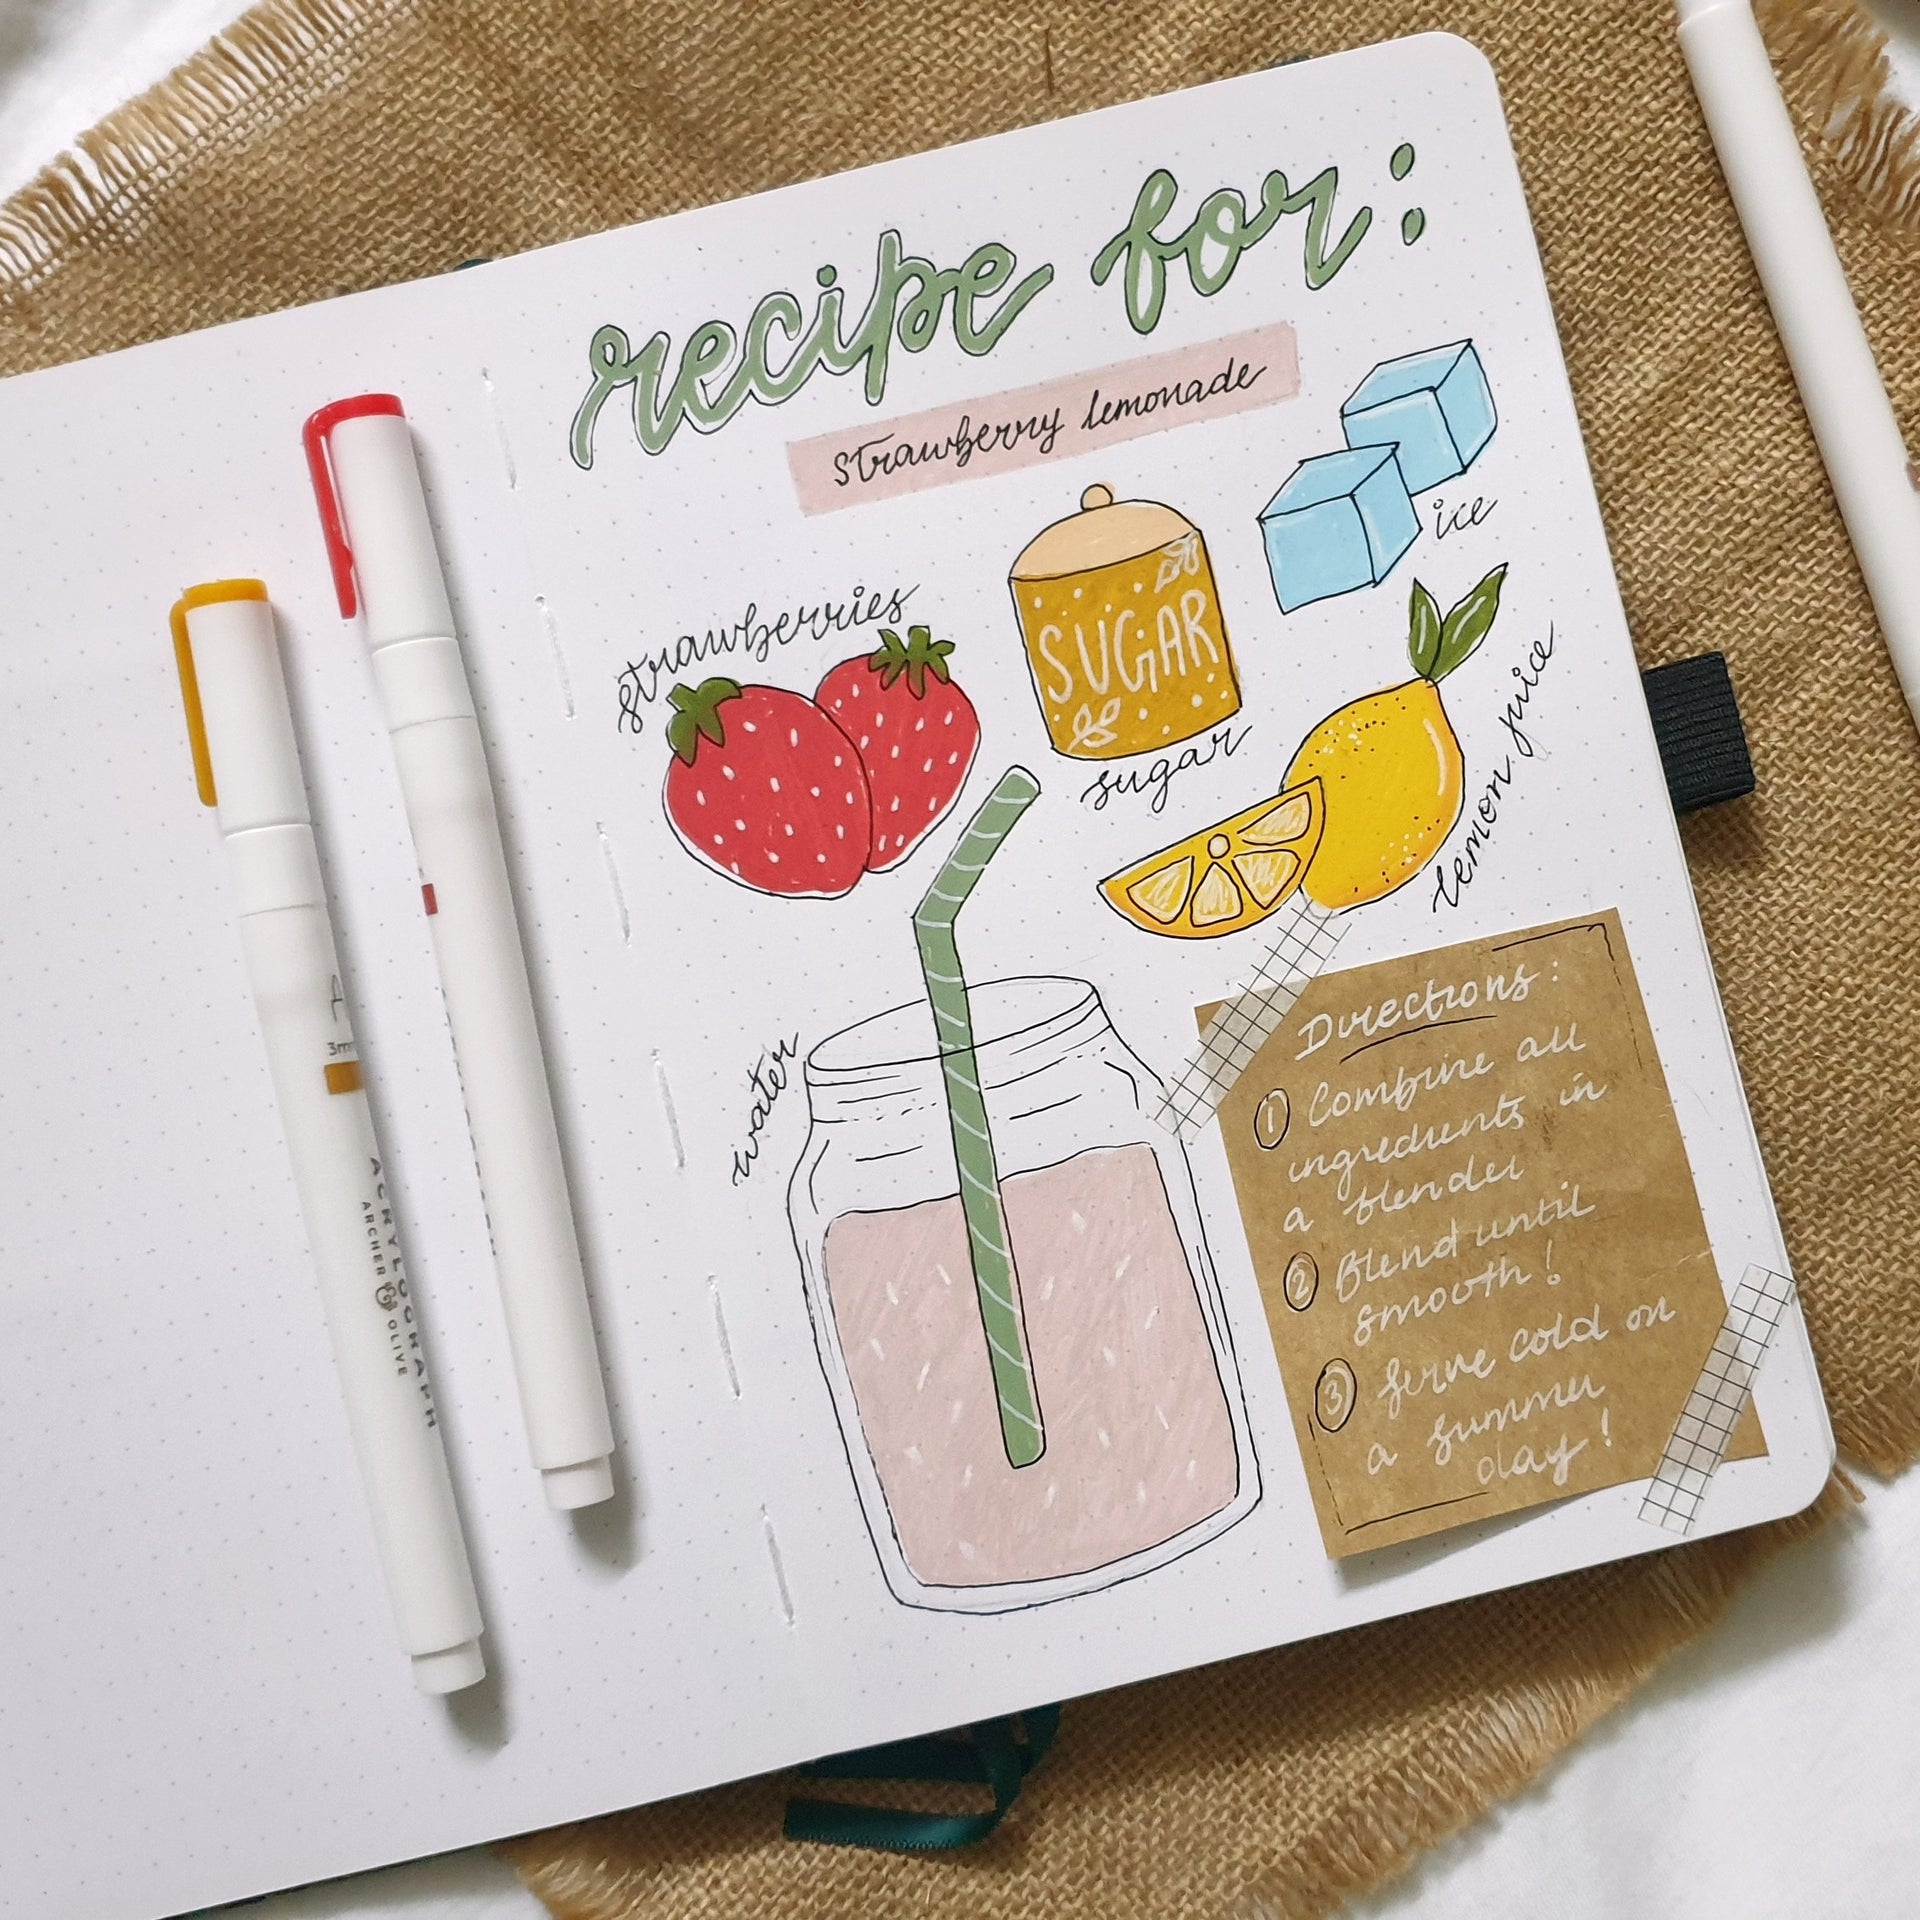 recipe for:
strawberry lemonade
ice
strawberries
SUGAR
sugar
lemon juice
water
Directions:
1 Combine all
ingredients in
a blender
2 Blend until
smooth!
3 Serve cold on
a summer
day!
3m
ACRYLOGRAPH
ARCHER & OLIVE